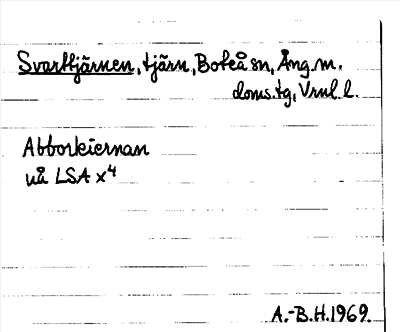 Svarttjärnen, tjärn, Boteå sn, Ång. m.
doms. tg, Vrnl. l.
Abborkiernan
uå LSA x⁴
A.-B.H. 1969.